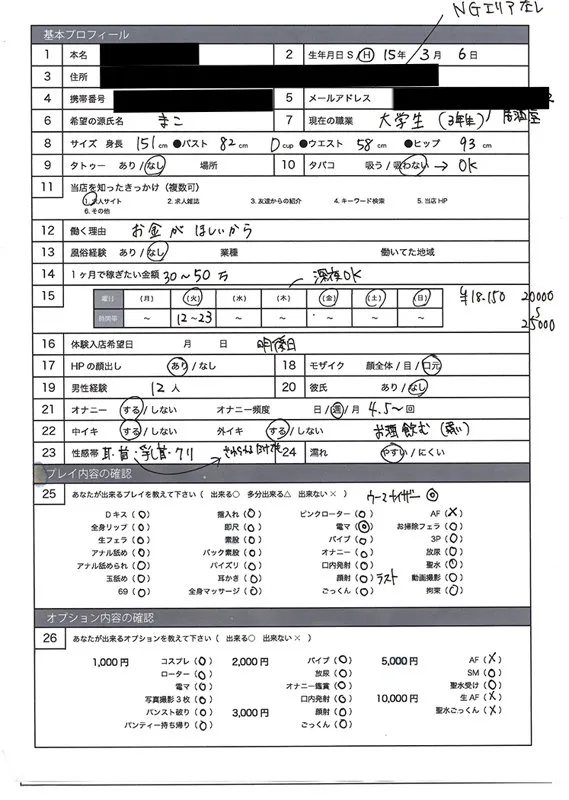 NGエリアなし
基本プロフィール
1 本名 2 生年月日 S / H 15年 3月 6日
3 住所
4 携帯番号 5 メールアドレス
6 希望の源氏名 まこ 7 現在の職業 大学生(3年生) 居酒屋
8 サイズ 身長 151cm ●バスト 82cm Dcup ●ウエスト 58cm ●ヒップ 93cm
9 タトゥー あり / なし 場所 10 タバコ 吸う / 吸わない → OK
11 当店を知ったきっかけ(複数可)
1.求人サイト 2.求人雑誌 3.友達からの紹介 4.キーワード検索 5.当店HP
6.その他
12 働く理由 お金がほしいから
13 風俗経験 あり / なし 業種 働いてた地域
14 1ヶ月で稼ぎたい金額 30〜50万 深夜OK
15 曜日 (月) (火) (水) (木) (金) (土) (日) ¥18.150 20000
時間帯 〜 12〜23 〜 〜 〜 〜 〜 25000
16 体験入店希望日 月 日
17 HPの顔出し あり / なし 18 モザイク 顔全体 / 目 / 口元
19 男性経験 12人 20 彼氏 あり / なし
21 オナニー する / しない オナニー頻度 日 / 週 / 月 4.5〜回
22 中イキ する / しない 外イキ する / しない お酒飲む
23 性感帯 耳・首・乳首・クリ 24 濡れ やすい / にくい
プレイ内容の確認
25 あなたが出来るプレイを教えて下さい ( 出来る○ 多分出来る△ 出来ない× ) ウーマナイザー ◎
Dキス (○) 指入れ (○) ピンクローター (○) AF (×)
全身リップ (○) 即尺 (○) 電マ (◎) お掃除フェラ (○)
生フェラ (○) 素股 (○) バイブ (○) 3P (○)
アナル舐め (○) バック素股 (○) オナニー (○) 放尿 (○)
アナル舐められ (○) パイズリ (○) 口内発射 (○) 聖水 (○)
玉舐め (○) 耳かき (○) 顔射 (○) ラスト 動画撮影 (○)
69 (○) 全身マッサージ (○) ごっくん (○) 拘束 (○)
オプション内容の確認
26 あなたが出来るオプションを教えて下さい ( 出来る○ 出来ない× )
1,000円 コスプレ (○) 2,000円 バイブ (○) 5,000円 AF (×)
ローター (○) 放尿 (○) SM (○)
電マ (○) オナニー鑑賞 (○) 聖水受け (○)
写真撮影3枚 (○) 口内発射 (○) 10,000円 生AF (×)
パンスト破り (○) 3,000円 顔射 (○) 聖水ごっくん (×)
パンティー持ち帰り (○) ごっくん (○)